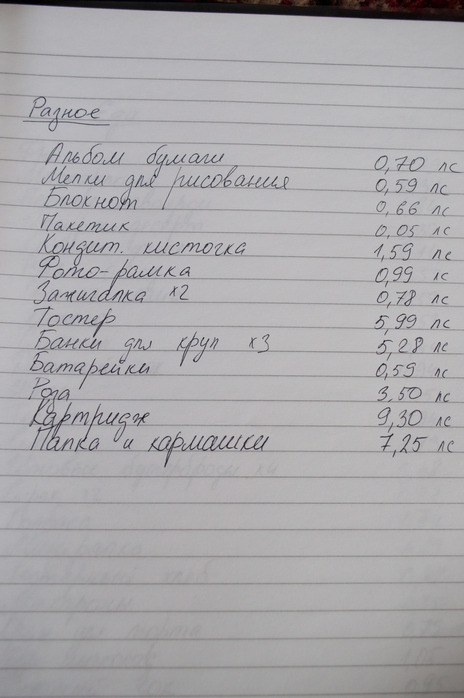 Разное
Альбом бумаги 0,70 лс
Мелки для рисования 0,59 лс
Блокнот 0,66 лс
Пакетик 0,05 лс
Кондит. кисточка 1,59 лс
Фото-рамка 0,99 лс
Зажигалка x2 0,78 лс
Тостер 5,99 лс
Банки для круп x3 5,28 лс
Батарейки 0,59 лс
Роза 3,50 лс
Картридж 9,30 лс
Папка и кармашки 7,25 лс